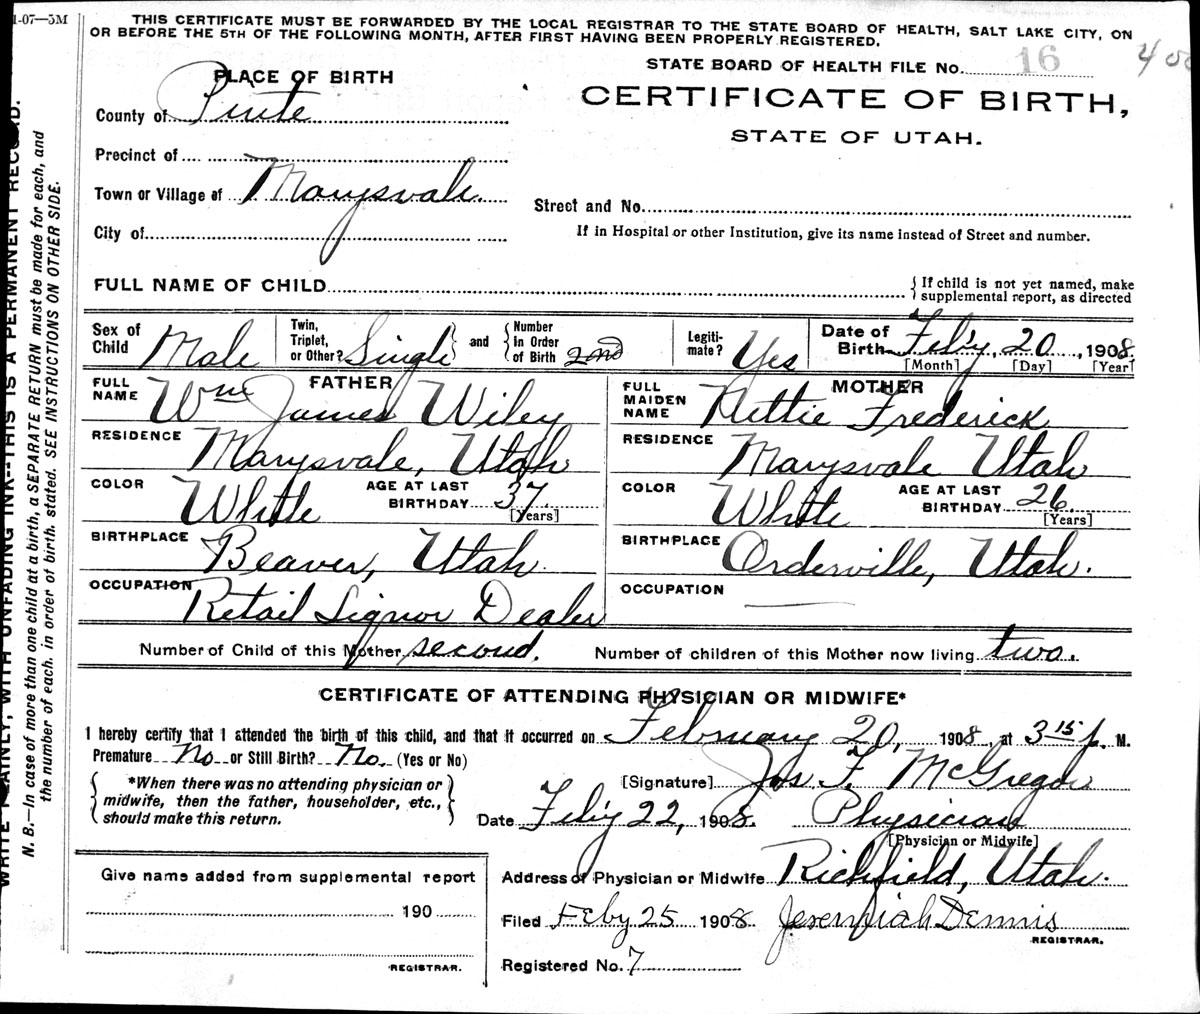 1-07—5M
THIS CERTIFICATE MUST BE FORWARDED BY THE LOCAL REGISTRAR TO THE STATE BOARD OF HEALTH, SALT LAKE CITY, ON
OR BEFORE THE 5TH OF THE FOLLOWING MONTH, AFTER FIRST HAVING BEEN PROPERLY REGISTERED.
STATE BOARD OF HEALTH FILE No. 16
CERTIFICATE OF BIRTH,
STATE OF UTAH.
PLACE OF BIRTH
County of Piute
Precinct of
Town or Village of Marysvale.
City of
Street and No.
If in Hospital or other Institution, give its name instead of Street and number.
FULL NAME OF CHILD
{ If child is not yet named, make
supplemental report, as directed
Sex of Child Male
Twin, Triplet, or Other? Single } and { Number in Order of Birth 2nd
Legiti-mate? Yes
Date of Birth Feb'y, 20, 1908,
[Month] [Day] [Year]
FATHER
FULL NAME Wm James Wiley
RESIDENCE Marysvale, Utah
COLOR White AGE AT LAST BIRTHDAY 37 [Years]
BIRTHPLACE Beaver, Utah.
OCCUPATION Retail Liquor Dealer
MOTHER
FULL MAIDEN NAME Nettie Frederick
RESIDENCE Marysvale Utah
COLOR White AGE AT LAST BIRTHDAY 26. [Years]
BIRTHPLACE Orderville, Utah.
OCCUPATION
Number of Child of this Mother second. Number of children of this Mother now living two.
CERTIFICATE OF ATTENDING PHYSICIAN OR MIDWIFE*
I hereby certify that I attended the birth of this child, and that it occurred on February 20, 1908, at 3 15 p. M.
Premature No or Still Birth? No. (Yes or No)
{ *When there was no attending physician or
midwife, then the father, householder, etc.,
should make this return. }
[Signature] Jos. F. McGregor
Date Feb'y 22, 1908. Physician
[Physician or Midwife]
Address of Physician or Midwife Richfield, Utah.
Filed Feby 25 1908 Jeremiah Dennis
REGISTRAR.
Registered No. 7
Give name added from supplemental report
190
REGISTRAR.
WRITE PLAINLY, WITH UNFADING INK--THIS IS A PERMANENT RECORD.
N. B.—In case of more than one child at a birth, a SEPARATE RETURN must be made for each, and
the number of each, in order of birth, stated. SEE INSTRUCTIONS ON OTHER SIDE.